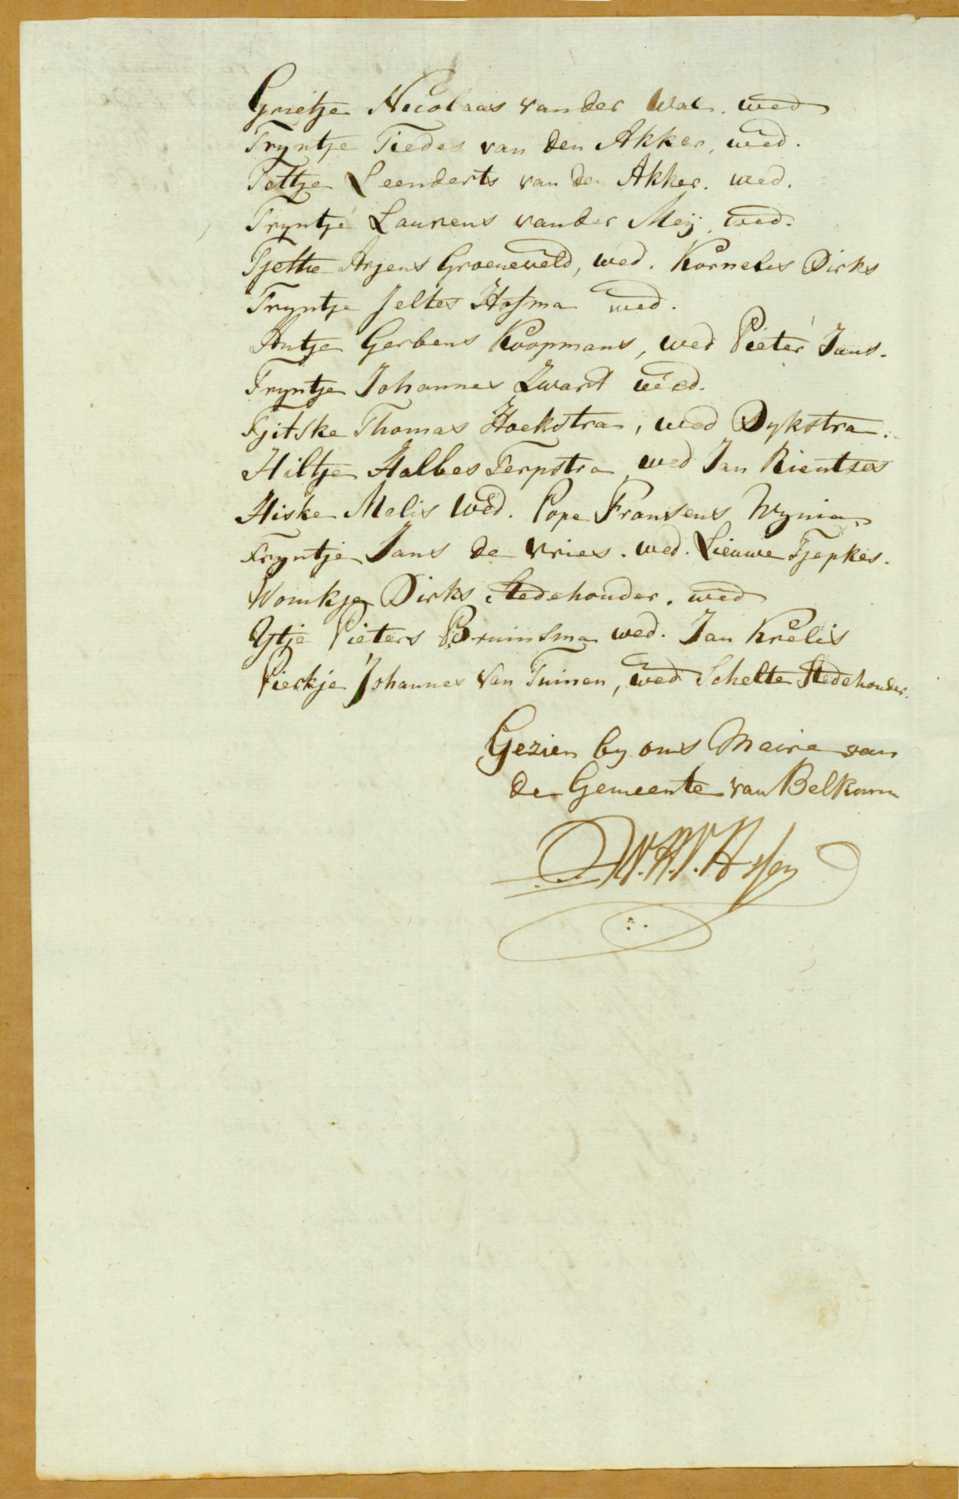 Grietje Nicolaas van der Wal. wed
Tryntje Tiedes van den Akker, wed.
Tettje Leenderts van den Akker. wed.
Tryntje Laurens van der Meij, wed.
Tjettie Arjens Groeneveld, wed. Kornelis Dirks
Tryntje Jeltes Hofma wed.
Antje Gerbens Koopmans, wed Pieter Jans.
Tryntje Johannes Zwart wed.
Tjitske Thomas Hoekstra, wed Dykstra.
Hiltje Halbes Terpstra wed Jan Rientses
Hiske Melis wed. Pope Fransens Wynia,
Tryntje Jans de Vries. wed. Lieuwe Tjepkes.
Womkje Dirks Stedehouder. wed
Ytje Pieters Bruinsma wed. Jan Krelis
Pierkje Johannes Van Tuinen, wed Schelte Stedehouder.
Gezien by ons Maire van
de Gemeente van Belkum